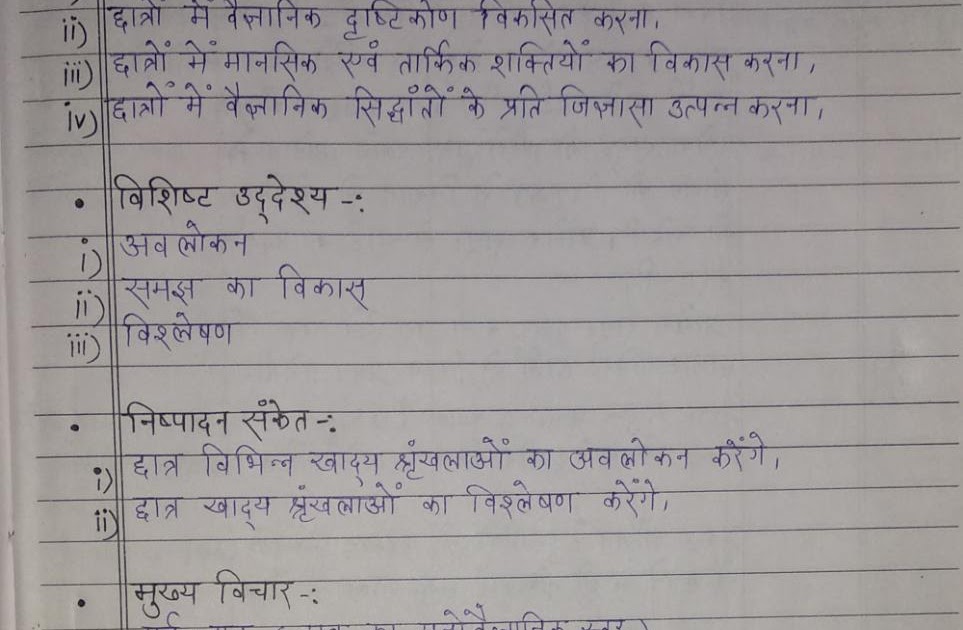 ii) छात्रों में वैज्ञानिक दृष्टिकोण विकसित करना,
iii) छात्रों में मानसिक एवं तार्किक शक्तियों का विकास करना,
iv) छात्रों में वैज्ञानिक सिद्धांतों के प्रति जिज्ञासा उत्पन्न करना,
• विशिष्ट उद्देश्य -:
i) अवलोकन
ii) समझ का विकास
iii) विश्लेषण
• निष्पादन संकेत -:
i) छात्र विभिन्न खाद्य श्रृंखलाओं का अवलोकन करेंगे,
ii) छात्र खाद्य श्रृंखलाओं का विश्लेषण करेंगे,
• मुख्य विचार -: